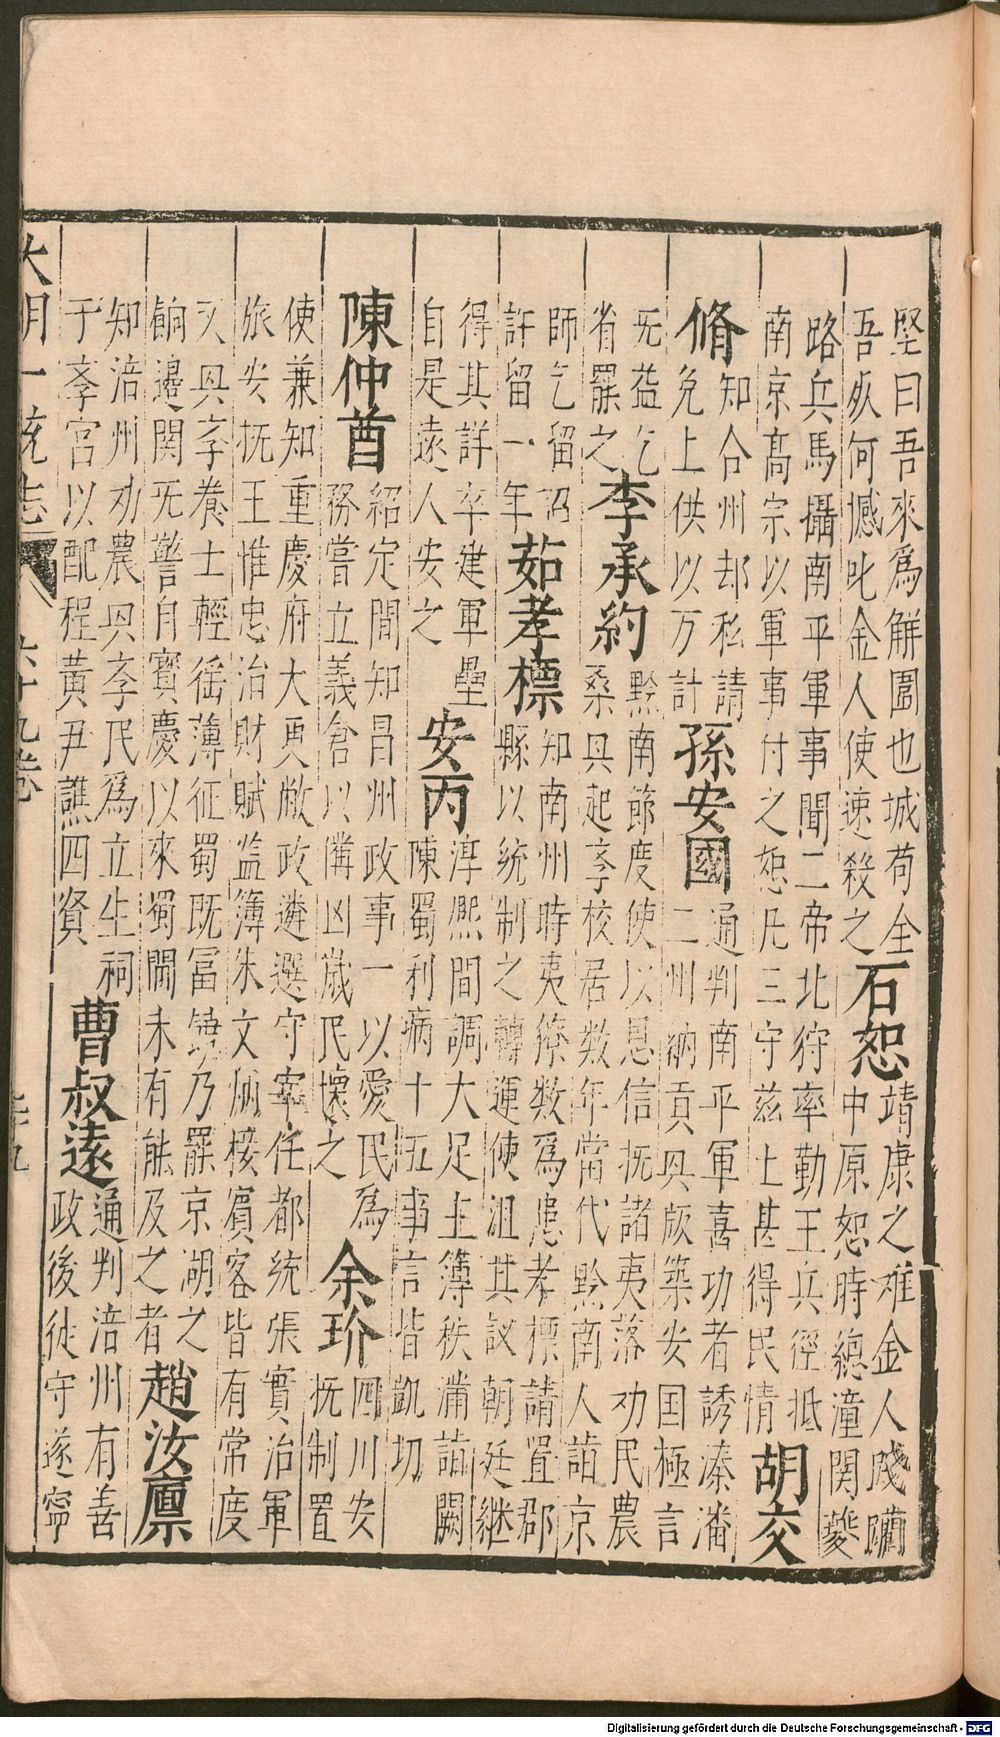 堅曰吾來為解圍也城苟全
吾死何憾叱金人使速殺之
石恕
靖康之难金人殘
中原恕時總潼関夔
路兵馬攝南平軍事聞二帝北狩率勤王兵徑抵
南京高宗以軍事付之恕凡三守兹土甚得民情
胡交
脩
知合州却私請
免上供以万計
孫安國
通判南平軍喜功者誘溱潘
二州納貢㒷版築安国極言
旡益乞
省罷之
李承約
黔南節度使以恩信抚諸夷落劝民農
桑㒷起孝校居数年當代黔南人詣京
師乞留詔
許留一年
茹孝標
知南州時夷獠数為患孝標請置郡
縣以統制之轉運使沮其議朝廷継
得其詳卒建軍壘
自是遠人安之
安丙
淳熙間調大足主簿秩滿詣闕
陳蜀利病十五事言皆凱切
陳仲酋
紹定間知昌州政事一以愛民為
務嘗立義倉以備凶歲民懷之
余玠
四川安
抚制置
使兼知重慶府大更敝政遴選守宰任都統張實治軍
旅安抚王惟忠治財賦监簿朱文炳接賓客皆有常度
又㒷孝養士輕徭薄征蜀既富饒乃罷京湖之
餉邉関旡警自寶慶以來蜀閫未有能及之者
趙汝廪
知涪州劝農㒷孝民為立生祠
于孝宫以配程黃尹譙四賢
曹叔遠
通判涪州有善
政後徙守遂寧
大明一統志 六十九卷 三十九
Digitalisierung gefördert durch die Deutsche Forschungsgemeinschaft - DFG